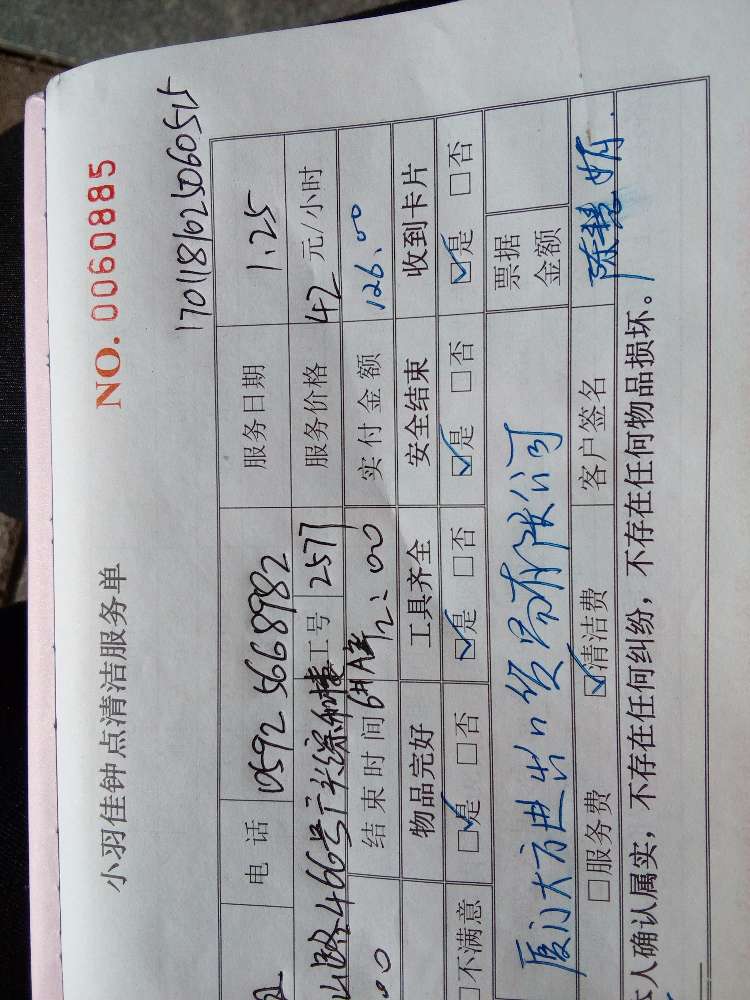 小羽佳钟点清洁服务单
NO. 0060885
170118102506051
电 话 0592 5668982 服务日期 1.25
山路466号 工号 2577 服务价格 42 元/小时
结束时间 12:00 实付金额 126.00
物品完好 工具齐全 安全结束 收到卡片
□不满意 ☑是 □否 ☑是 □否 ☑是 □否 ☑是 □否
厦门大方进出口贸易有限公司 票据金额
□服务费 ☑清洁费 客户签名 陈慧娟
人确认属实，不存在任何纠纷，不存在任何物品损坏。